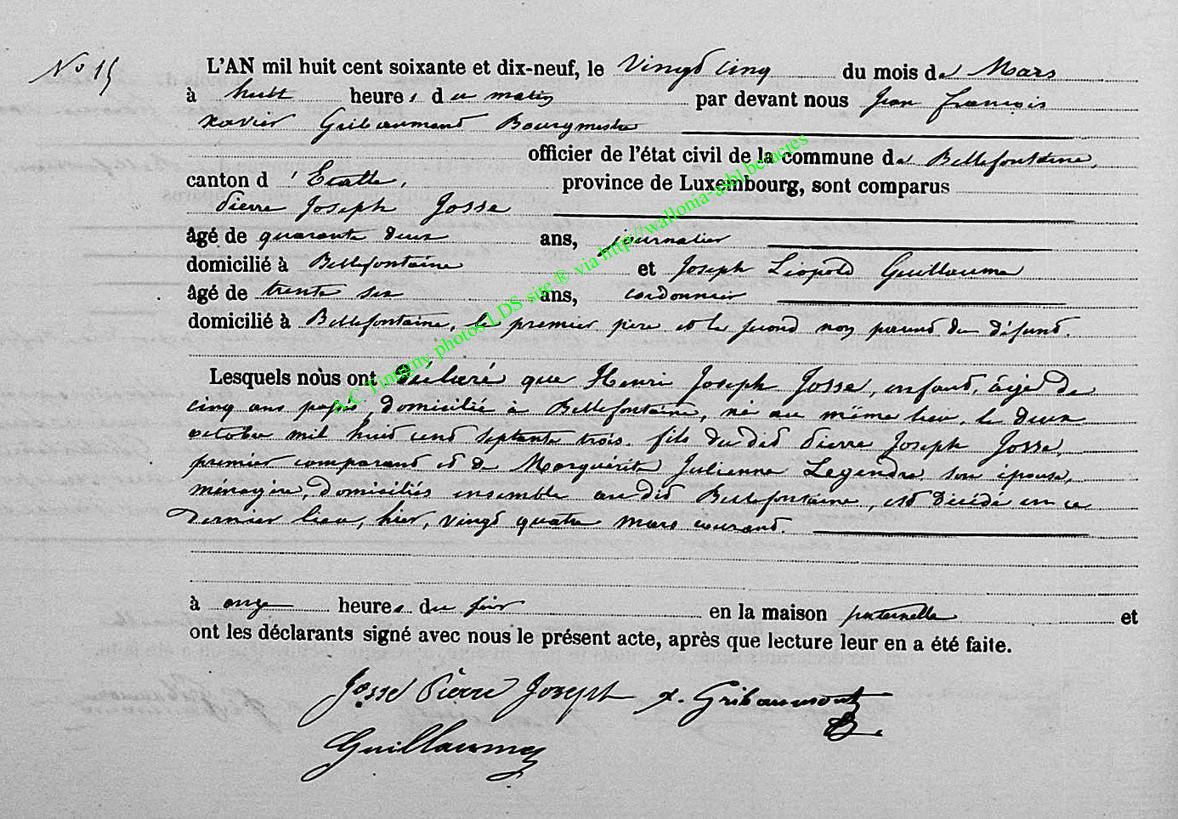 N° 15
L'AN mil huit cent soixante et dix-neuf, le Vingt cinq du mois de Mars
à huit heures du matin par devant nous Jean François
Xavier Gribaumont Bourgmestre
officier de l'état civil de la commune de Bellefontaine,
canton d'Etalle, province de Luxembourg, sont comparus
Pierre Joseph Josse
âgé de quarante deux ans, journalier
domicilié à Bellefontaine et Joseph Léopold Guillaume
âgé de trente six ans, cordonnier
domicilié à Bellefontaine, le premier père et le second non parent du défunt.
Lesquels nous ont déclaré que Henri Joseph Josse, enfant, âgé de
cinq ans passés, domicilié à Bellefontaine, né au même lieu, le deux
octobre mil huit cent septante trois, fils du dit Pierre Joseph Josse,
premier comparant et de Marguérite Julienne Legendre, son épouse,
ménagère, domiciliés ensemble au dit Bellefontaine, est décédé en ce
dernier lieu, hier, vingt quatre mars courant.
à onze heures du soir en la maison paternelle et
ont les déclarants signé avec nous le présent acte, après que lecture leur en a été faite.
Josse Pierre Joseph X. Gribaumont
Guillaume
photos LDS site ® via http://wallonia-asbl.be/actes